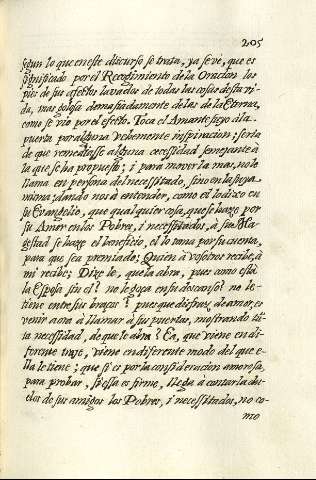 205
segun lo que en este discurso se trata, ya se vè, que es
significado por el Recogimiento de la Oracion los
pies de sus afectos lavados de todas las cosas desta vi-
da, mas golosa demasiadamente de las de la Eterna,
como se vio por el efecto. Toca el Amante suyo à la
puerta por alguna vehemente inspiracion; seria
de que remediasse alguna necessidad semejante à
la que se ha propuesto; i para mover la mas, no le
llama en persona del necessitado, sino en la suya
misma; dando nos à entender, como èl lo dixo en
su Evangelio, que qualquier cosa, que se haze por
su Amor en los Pobres, i necessitados, à su Ma-
gestad se haze el beneficio, el lo toma por su cuenta,
para que sea premiado; Quien à vosotros recibe, à
mi recibe; Dize le, que la abra, pues como està
la Esposa sin el? no le goza en su descanso? no le
tiene entre sus braços? pues que disfraz de amor, es
venir aora à llamar à sus puertas, mostrando tã-
ta necessidad, de que le abra? Ea, que viene en di-
ferente trage, viene en diferente modo del que e-
lla le tiene; que si es por la consideracion amorosa,
para probar, si esta es firme, llega à contar la due-
los de sus amigos los Pobres, i necessitados, no co-
mo